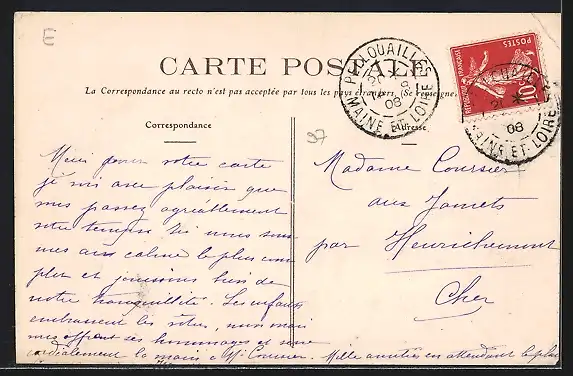 E
CARTE POSTALE
La Correspondance au recto n'est pas acceptée par tous les pays étrangers (Se renseigner
Correspondance
Adresse
37
POSTES
REPUBLIQUE FRANÇAISE
10
LOUAILLES
MAINE ET LOIRE
08
MAINE ET LOIRE
08
Merci pour votre carte
je vois avec plaisir que
vous passez agréablement
votre temps. Ici nous sommes
au calme le plus com
plet et jouissons bien de
notre tranquillité. Les enfants
embrassent les vôtres, mon mari
vous offrent ses hommages et serre
cordialement la main à Mr Coursier. Mille amitiés en attendant le plai
Madame Coursier
aux Jamets
par Henrichemont
Cher